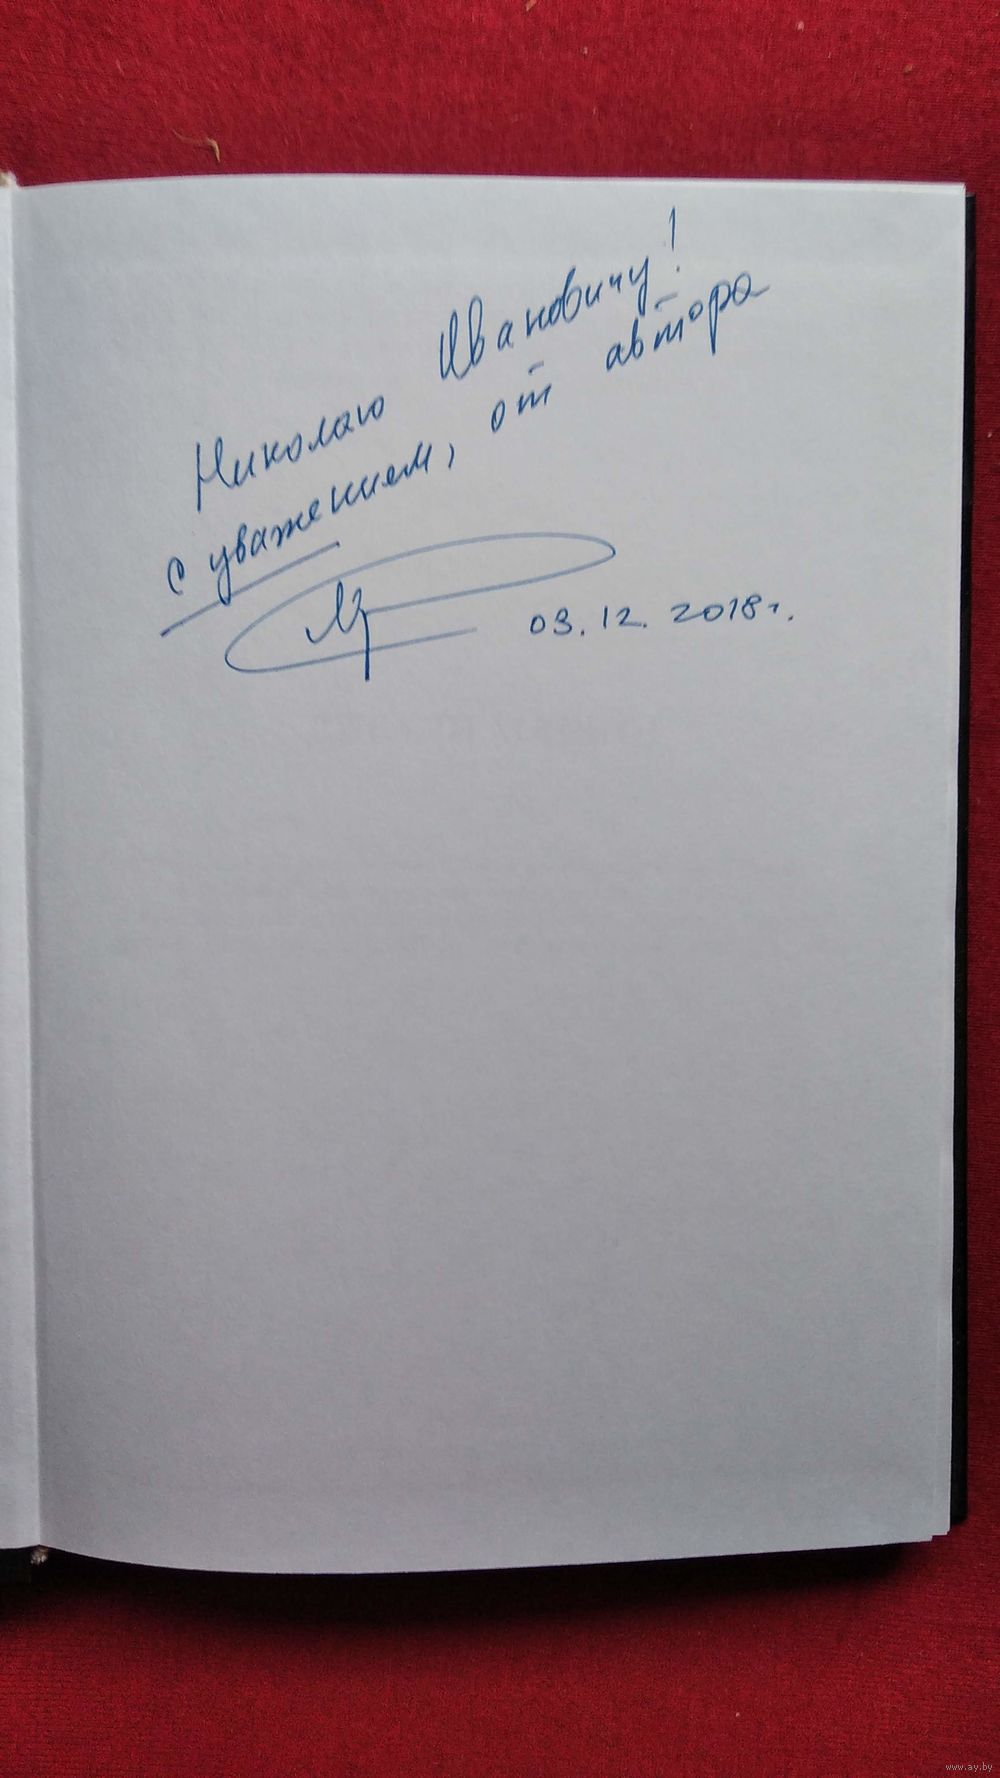 Николаю Ивановичу!
с уважением, от автора
03.12.2018г.
www.ay.by